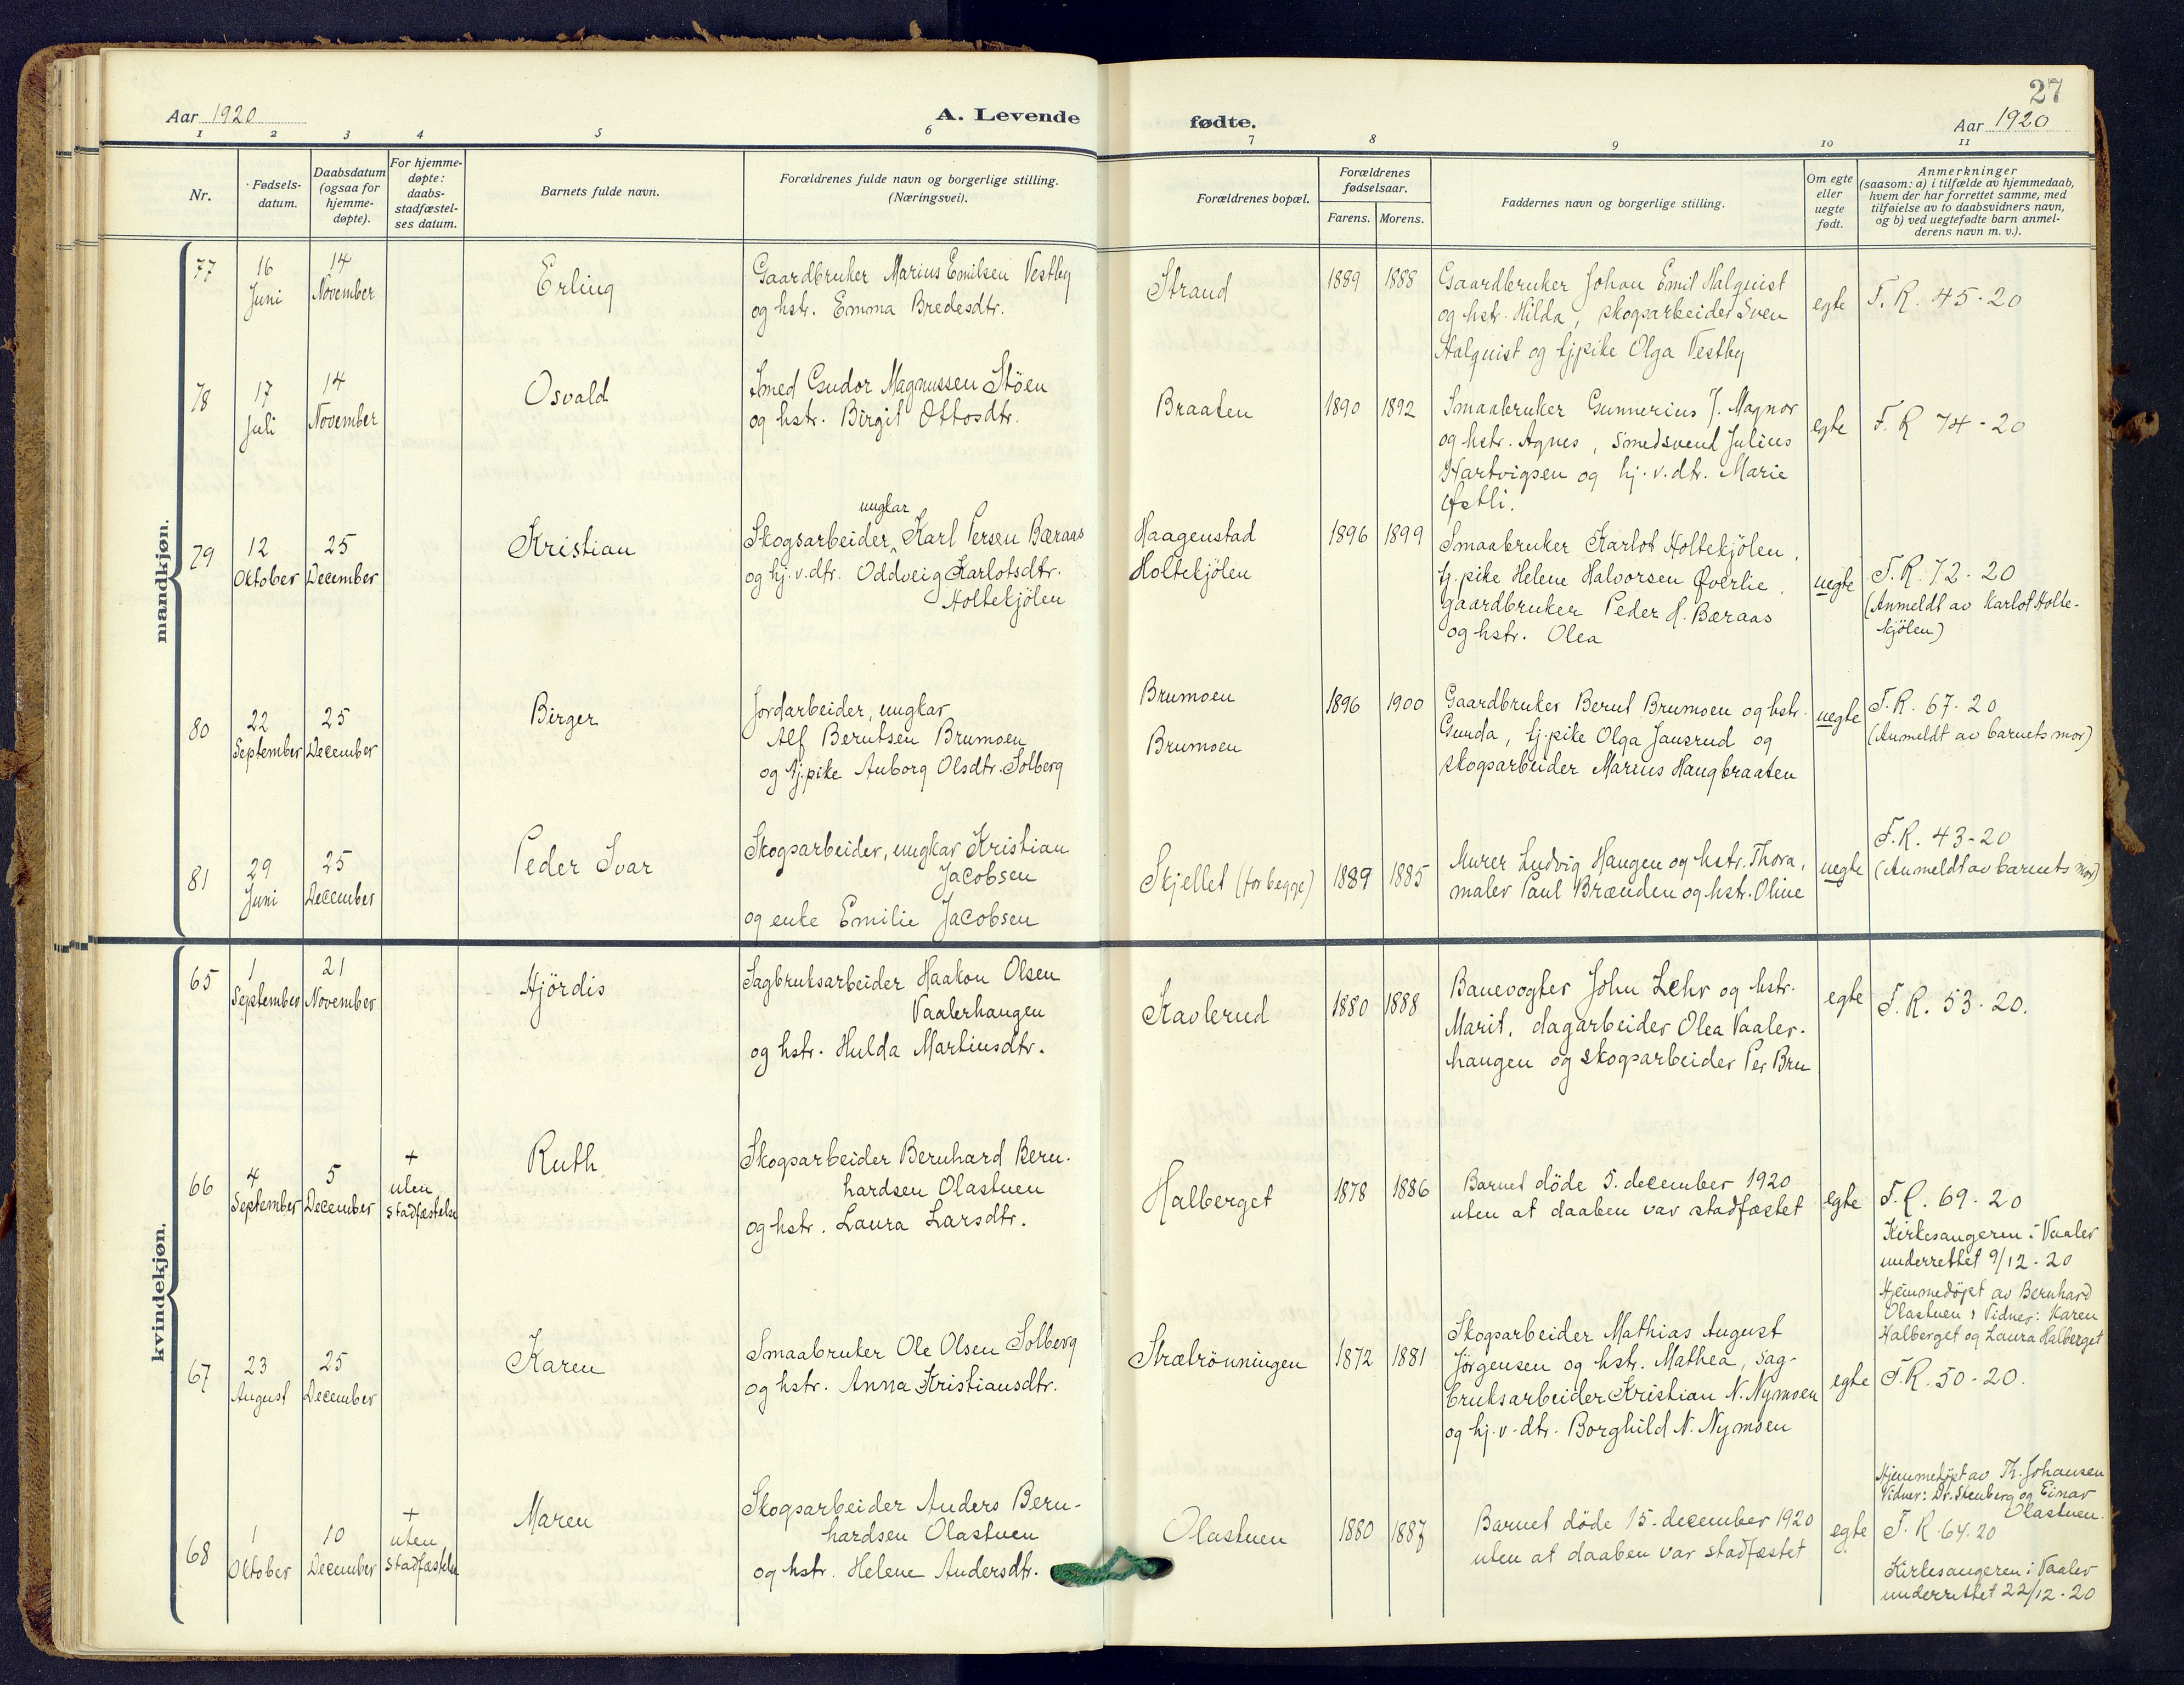 27
Aar 1920
A. Levende
fødte.
Aar 1920
1 2 3 4 5 6 7 8 9 10 11
Nr.
Fødsels-
datum.
Daabsdatum
(ogsaa for
hjemme-
døpte).
For hjemme-
døpte:
daabs-
stadfæstel-
ses datum.
Barnets fulde navn.
Forældrenes fulde navn og borgerlige stilling.
(Næringsvei).
Forældrenes bopæl.
Forældrenes
fødselsaar.
Farens. Morens.
Faddernes navn og borgerlige stilling.
Om egte
eller
uegte
født.
Anmerkninger
(saasom: a) i tilfælde av hjemmedaab,
hvem der har forrettet samme, med
tilføielse av to daabsvidners navn,
og b) ved uegtefødte barn anmel-
derens navn m. v.).
mandkjøn.
77
16
Juni
14
November
Erling
Gaardbruker Marius Emilsen Vestby
og hstr. Emma Bredesdtr.
Strand
1889
1888
Gaardbruker Johan Emil Halquist
og hstr. Hilda, skogsarbeider Sven
Halquist og tjpike Olga Vestby
egte
F. R. 45-20
78
17
Juli
14
November
Osvald
Smed Gudor Magnussen Støen
og hstr. Birgit Ottosdtr.
Braaten
1890
1892
Smaabruker Gunnerius J. Magnor
og hstr. Agnes, smedsvend Julius
Hartvigsen og hj. v. dtr. Marie
Østli.
egte
F. R 74-20
79
12
Oktober
25
December
Kristian
ungkar
Skogsarbeider, Karl Persen Bæraas
og hj. v. dtr. Oddveig Karlotsdtr.
Holtekjölen
Haagenstad
Holtekjölen
1896
1899
Smaabruker Karlot Holtekjölen,
tj. pike Helene Halvorsen Øverlie,
gaardbruker Peder H. Bæraas
og hstr. Olea
uegte
F. R. 72-20
(Anmeldt av Karlot Holte-
kjölen)
80
22
September
25
December
Birger
Jordarbeider, ungkar
Alf Berntsen Brumoen
og tj. pike Anborg Olsdtr. Solberg
Brumoen
Brumoen
1896
1900
Gaardbruker Bernt Brumoen og hstr.
Gunda, tj. pike Olga Jansrud og
skogsarbeider Marius Haugbraaten
uegte
F. R. 67-20
(Anmeldt av barnets mor)
81
29
Juni
25
December
Peder Ivar
Skogsarbeider, ungkar Kristian
Jacobsen
og enke Emilie Jacobsen
Skjellet (for begge)
1889
1885
Murer Ludvig Haugen og hstr. Thora,
maler Paul Brænden og hstr. Oline
uegte
F. R. 43-20
(Anmeldt av barnets mor)
kvindekjøn.
65
1
September
21
November
Hjördis
Sagbruksarbeider Haakon Olsen
Vaalerhaugen
og hstr. Hulda Martinsdtr.
Kavlerud
1880
1888
Banevogter John Lehr og hstr.
Marit, dagarbeider Olea Vaaler-
haugen og skogsarbeider Per Bru
egte
F. R. 53-20.
66
4
September
5
December
+
uten
stadfæstelse
Ruth
Skogsarbeider Bernhard Bern-
hardsen Olastuen
og hstr. Laura Larsdtr.
Halberget
1878
1886
Barnet döde 5. december 1920
uten at daaben var stadfæstet
egte
F. R. 69-20
Kirkesangeren i Vaaler
underrettet 9/12-20
Hjemmedöpt av Bernhard
Olastuen, Vidner: Karen
Halberget og Laura Halberget
67
23
August
25
December
Karen
Smaabruker Ole Olsen Solberg
og hstr. Anna Kristiansdtr.
Strætrönningen
1872
1881
Skogsarbeider Mathias August
Jørgensen og hstr. Mathea, sag-
bruksarbeider Kristian N. Nymoen
og hj. v. dtr. Borghild N. Nymoen
egte
F. R. 50-20.
68
1
Oktober
10
December
+
uten
stadfæstelse
Maren
Skogsarbeider Anders Bern-
hardsen Olastuen
og hstr. Helene Andersdtr.
Olastuen
1880
1887
Barnet döde 15. december 1920
uten at daaben var stadfæstet
egte
Hjemmedöpt av Th. Johansen
Vidner: Dr. Stenberg og Einar
Olastuen.
F. R. 64-20
Kirkesangeren i Vaaler
underrettet 22/12-20